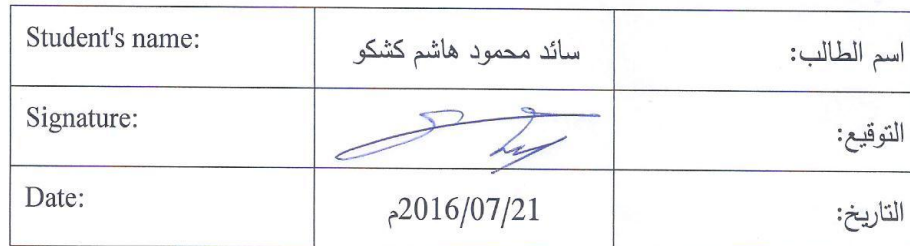 Student's name: سائد محمود هاشم كشكو اسم الطالب:
Signature: التوقيع:
Date: 2016/07/21م التاريخ: